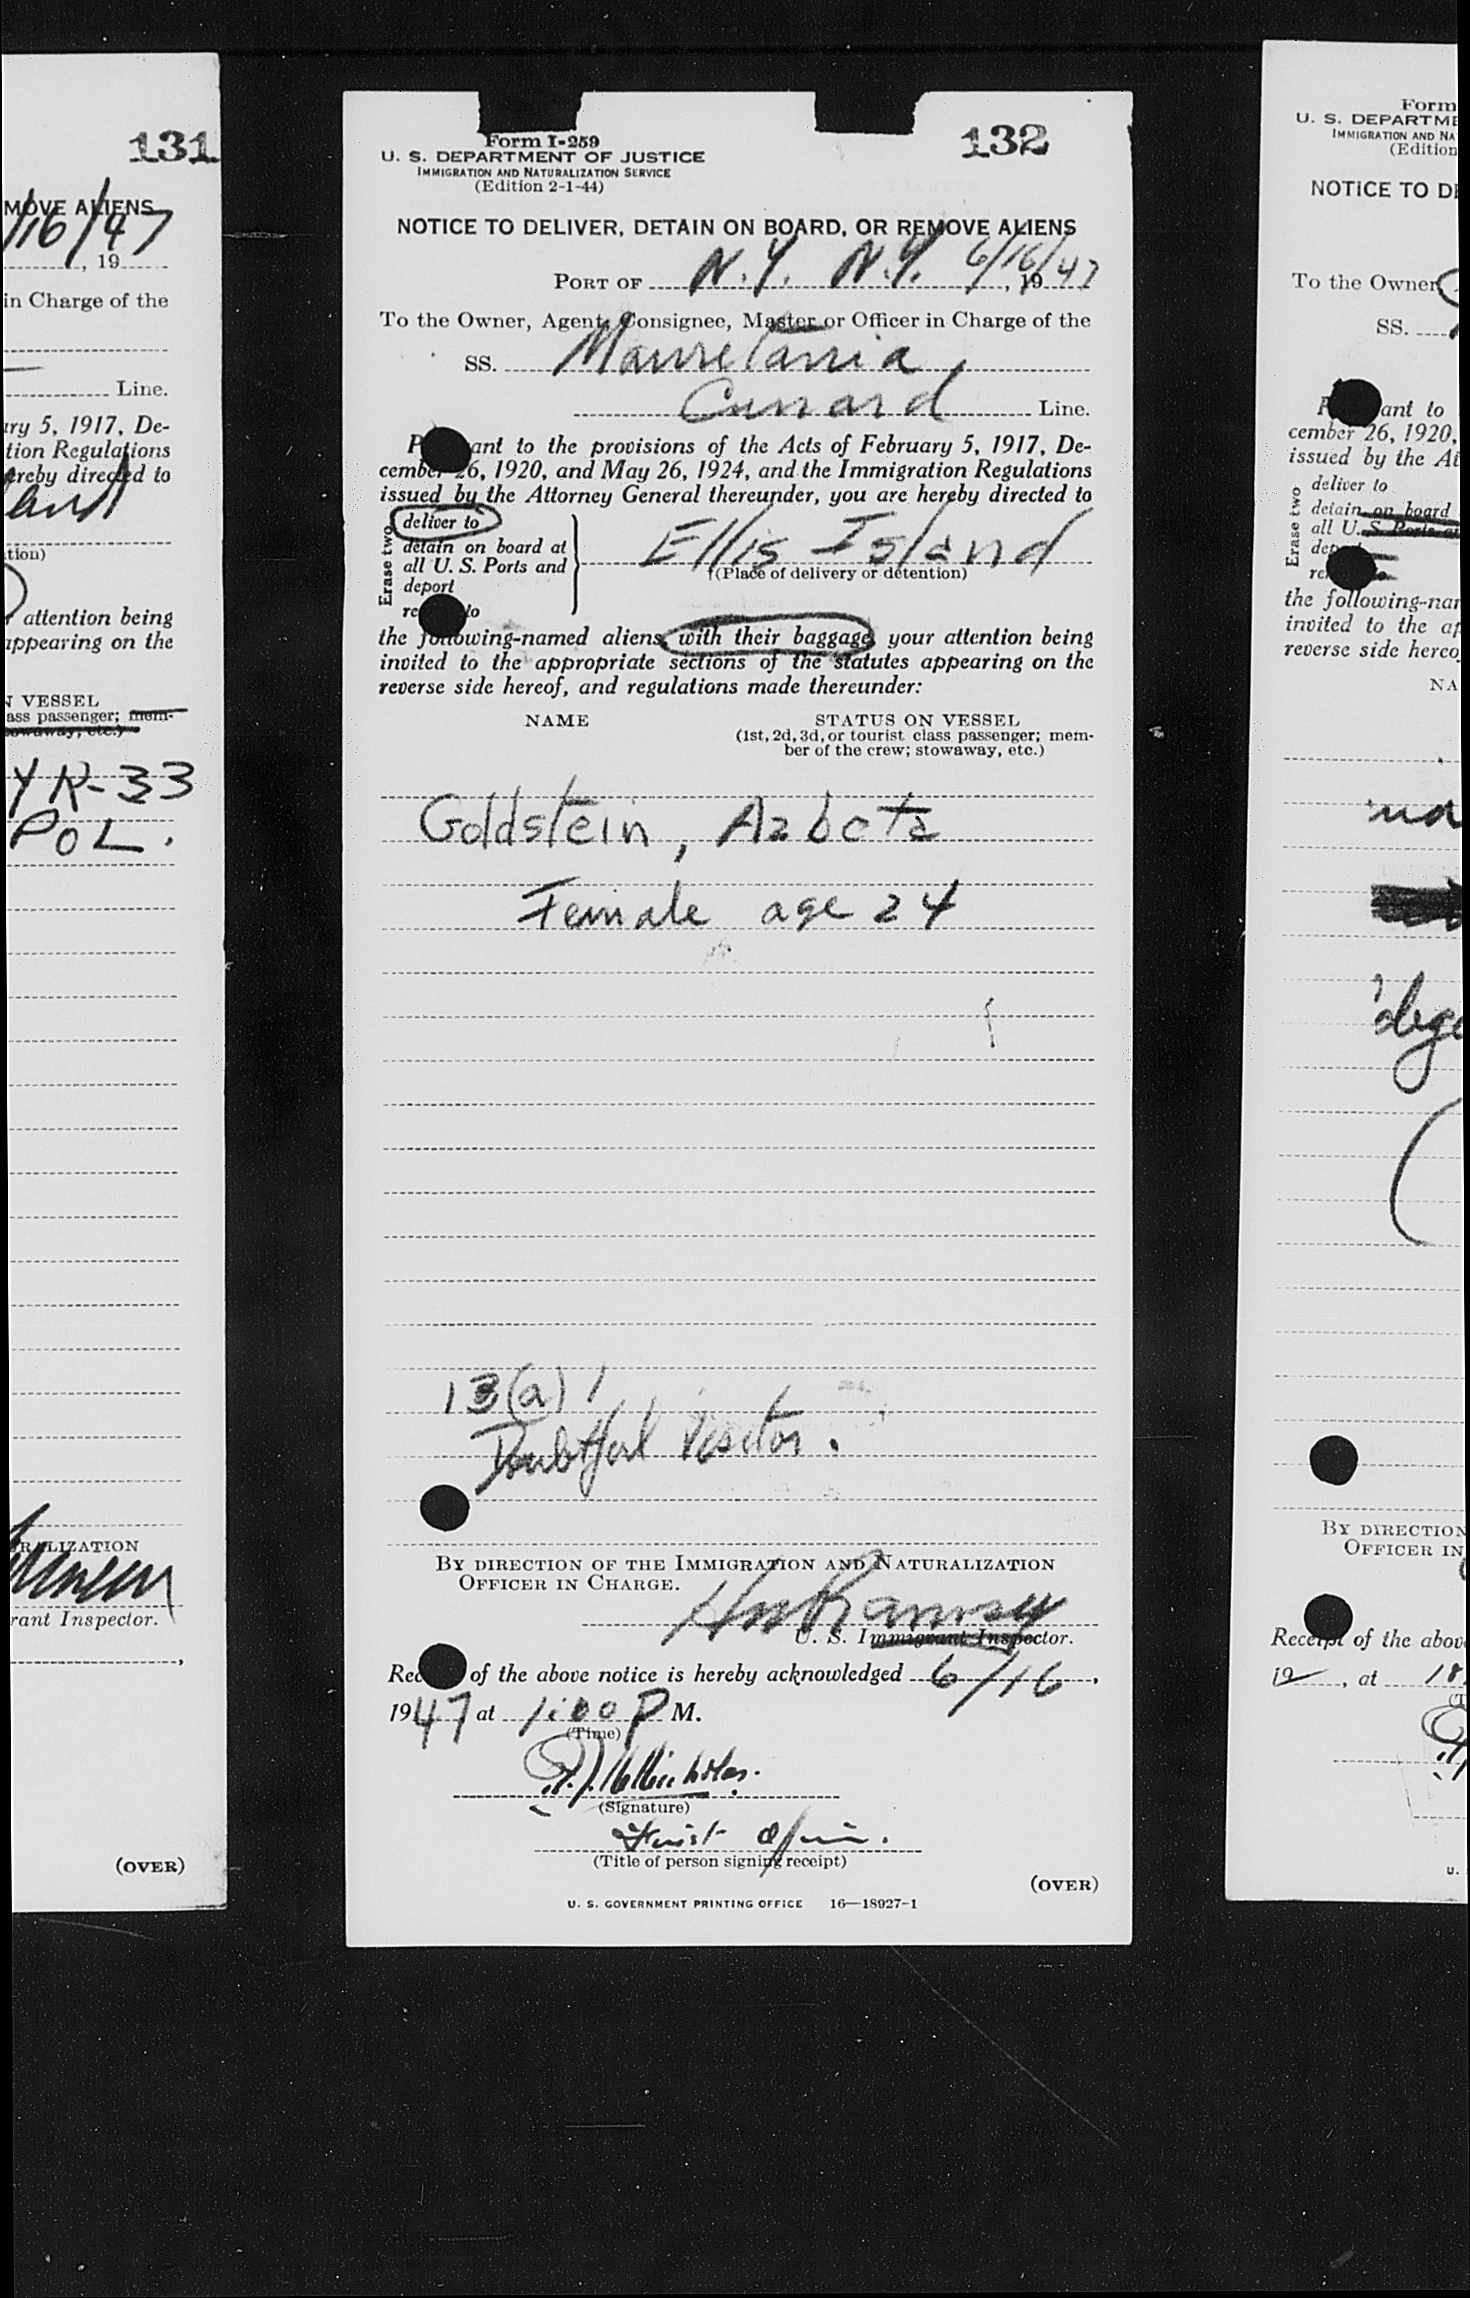 131
MOVE ALIENS
/16/47
, 19
in Charge of the
Line.
ary 5, 1917, De-
tion Regulations
ereby directed to
land
tion)
attention being
appearing on the
N VESSEL
ass passenger; mem-
towaway, etc.)
YR-33
POL.
RALIZATION
rant Inspector.
,
(OVER)
Form I-259
132
U. S. DEPARTMENT OF JUSTICE
IMMIGRATION AND NATURALIZATION SERVICE
(Edition 2-1-44)
NOTICE TO DELIVER, DETAIN ON BOARD, OR REMOVE ALIENS
PORT OF N.Y. N.Y. 6/16/, 1947
To the Owner, Agent, Consignee, Master or Officer in Charge of the
SS. Mauretania
Cunard Line.
P ant to the provisions of the Acts of February 5, 1917, De-
cember 26, 1920, and May 26, 1924, and the Immigration Regulations
issued by the Attorney General thereunder, you are hereby directed to
Erase two
deliver to
detain on board at
all U. S. Ports and
deport
re to
Ellis Island
(Place of delivery or detention)
the following-named aliens, with their baggage, your attention being
invited to the appropriate sections of the statutes appearing on the
reverse side hereof, and regulations made thereunder:
NAME STATUS ON VESSEL
(1st, 2d, 3d, or tourist class passenger; mem-
ber of the crew; stowaway, etc.)
Goldstein,
Female age 24
13(a) 1
Doubtful Visitor.
BY DIRECTION OF THE IMMIGRATION AND NATURALIZATION
OFFICER IN CHARGE.
U. S. Immigrant Inspector.
Rec of the above notice is hereby acknowledged 6/16,
1947 at 1:00 P M.
(Time)
(Signature)
First
(Title of person signing receipt)
(OVER)
U. S. GOVERNMENT PRINTING OFFICE 16—18927-1
Form
U. S. DEPARTME
IMMIGRATION AND NA
(Edition
NOTICE TO DE
To the Owner,
SS.
P ant to
cember 26, 1920,
issued by the At
Erase two
deliver to
detain on board
all U. S. Ports a
dep
re
the following-nam
invited to the ap
reverse side hereo
NA
BY DIRECTION
OFFICER IN
Receipt of the abov
19 , at
U.